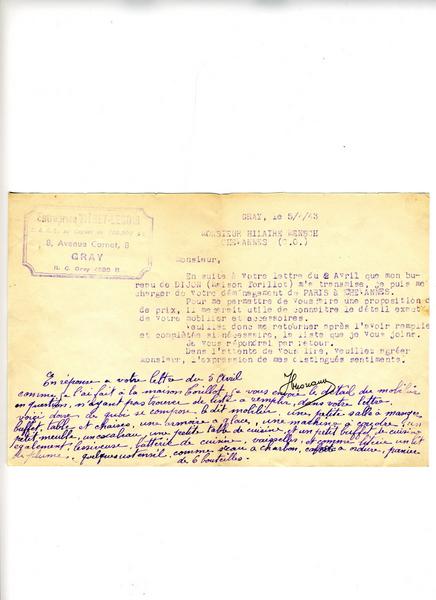 8, Avenue Carnot, 8
GRAY
GRAY, le 5/4/43
MONSIEUR HILAIRE MENSCH
CHEVANNES (C.O.)
Monsieur,
En suite à votre lettre du 2 Avril que mon bu-
reau de DIJON (Maison Torillot) m'a transmise, je puis me
charger de votre déménagement de PARIS à CHEVANNES.
Pour me permettre de vous faire une proposition d
de prix, il me serait utile de connaître le détail exact
de votre mobilier et accessoires.
Veuillez donc me retourner après l'avoir remplie
et complétée si nécessaire, la liste que je vous joins.
Je vous répondrai par retour.
Dans l'attente de vous lire, veuillez agréer
monsieur, l'expression de mes distingués sentiments.
En réponse a votre lettre du 5 Avril
comme je l'ai fait à la maison, je vous envoie le détail du mobilier
en question, n'ayant pas trouvé de liste a remplir, dans votre lettre.
voici donc de quoi se compose le dit mobilier, une petite salle à manger,
buffet, table et chaises, une armoire a glace, une machine à coudre, un
petit meuble, un escabeau, une petite table de cuisine, et un petit buffet de cuisine
également, lessiveuse, batterie de cuisine, vaisselle, et comme literie un lit
de plume, quelques ustensil, comme seau a charbon, a ordure, panier
de 6 bouteilles.